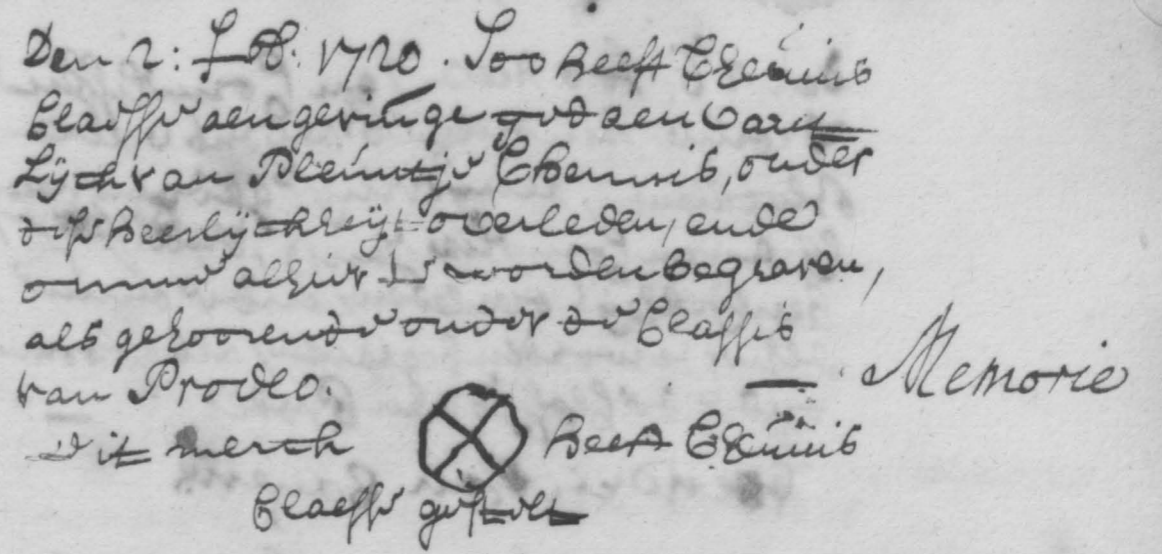 Den 2: Feb: 1720. Soo heeft Theunis
Claesse aengevinge gedaen van 't
Lijck van Pleuntje Theunis, onder
dese heerlijckheijt overleden, ende
omme alhier te worden begraven,
als gehoorende onder de Classis
van Prodeo. — Memorie
dit merck heeft Theunis
Claesse gestelt